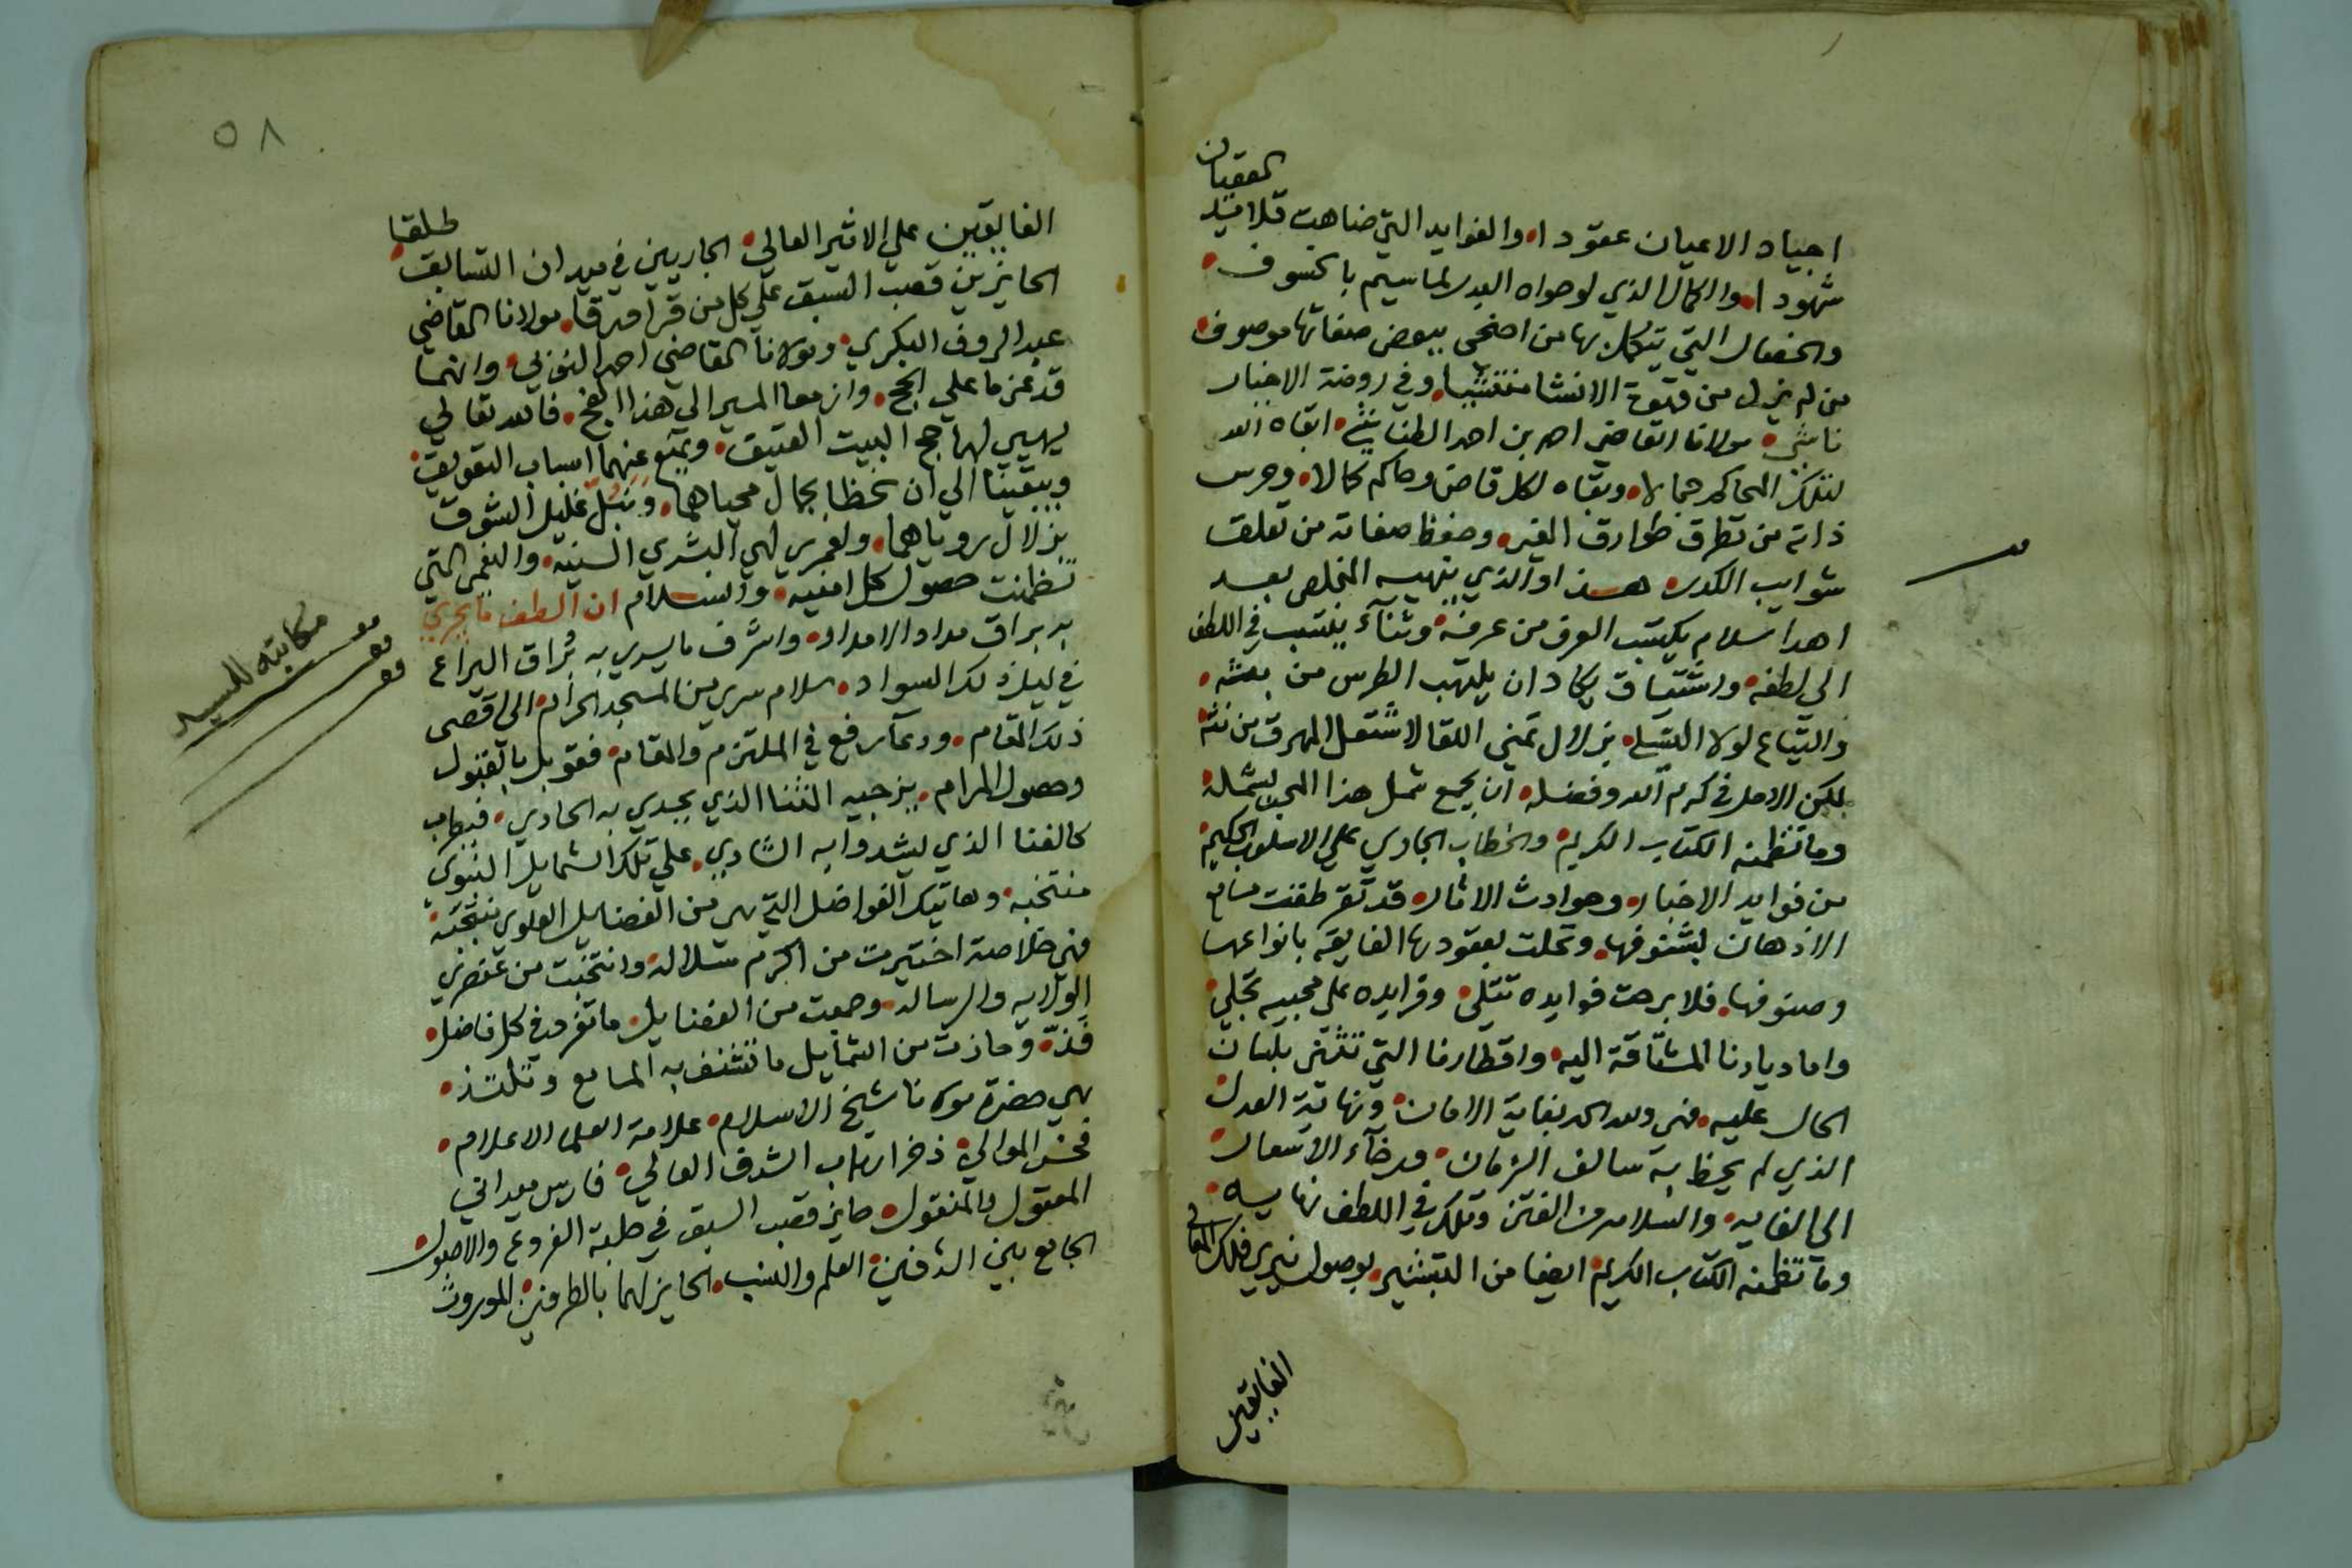 اجياد الاعيان عقودا والفوايد التي ضاهت قلايد العقيان
شهودا والكمال الذي لو حواه البدر لما سيم بالخسوف
والخصال التي يتكمل بها من اضحى ببعض صفاتها موصوف
من لم يزل من قهوة الانشا منتشيا وفي روضة الاخبار
ناشي مولانا القاضي احمد بن احمد الطناشي ابقاه الله
لتلك المحاكم جمالا وبقاه لكل قاض وحاكم كمالا وحرس
ذاته من تطرق طوارق الغير وحفظ صفاته من تعلق
شوايب الكدر هذا والذي ينهيه المخلص بعد
اهدا سلام يكتب العرف من عرفه وثناء ينتسب في اللطف
الى لطفه واشتياق يكاد ان يلتهب الطرس من بعثه
والتياع لولا التسلي بزلال تمني اللقا لاشتعل المهرق من نثه
لكن الامل في كرم الله وفضله ان يجمع شمل هذا المحب بشمله
وما تظمنه الكتاب الكريم والخطاب الجاري على الاسلوب الحكيم
من فوايد الاخبار وحوادث الاثار قد تقرطقت مسامع
الاذهان بشنوفها وتحلت بعقودها الفايقة بانواعها
وصنوفها فلا برحت فوايده تتلى وفرايده على محبيه تجلى
واما ديارنا المشتاقة اليه واقطارنا التي تثني بلسان
الحال عليه فهي ولله الحمد بغاية الامان ونهاية العدل
الذي لم يحظ به سالف الزمان ورخاء الاسعار
الى الغايه والسلامه من الفتن وتلك في اللطف نهايه
وما تظمنه الكتاب الكريم ايضا من التبشير بوصول نيري فلك المعالي
الفايقين
٥٨
الفايقين على الاثير العالي الجاريين في ميدان التسابق طلقا
الحايزين قصب السبق على كل من قرا ورقا مولانا القاضي
عبد الروف البكري ومولانا القاضي احمد النوبي وانهما
قد عزما على الحج وازمعا المسير الى هذا الفج فالله تعالى
يهيي لهما حج البيت العتيق ويمنع عنهما اسباب التعويق
ويبقينا الى ان نحظا بجمال محياهما ونبل غليل الشوق
بزلال روياهما ولعمري لهي البشرى السنيه والنعمى التي
تظمنت حصول كل امنيه والسلام ان الطف ما يجري
به براق مداد الامداد واشرف ما يسري به براق اليراع
في ليل ذلك السواد سلام سرى من المسجد الحرام الى اقصى
ذلك المقام ودعا رفع في الملتزم والمقام فقوبل بالقبول
وحصول المرام يزجيه الثنا الذي يحدي به الحادي فيطرب
كالغنا الذي يشدوا به الشادي على تلك الشمايل النبوي
منتخبه وهاتيك الفواضل التي هي من الفضايل العلوي
فهي خلاصة اختيرت من اكرم سلاله وانتخبت من عنصري
الولايه والرساله وجمعت من الفضايل ما تفرد في كل فاضل
فذه وحازت من الشمايل ما تتشنف به المسامع وتلتذ
هي حضرة مولانا شيخ الاسلام علامة العلما الاعلام
فخر الموالي ذخر ارباب الشرف العالي فارس ميداني
المعقول والمنقول حايز قصب السبق في حلبة الفروع والاصول
الجامع بين الشرفين العلم والنسب الحايز لهما بالطرفين الموروث
مكاتبه للسيد